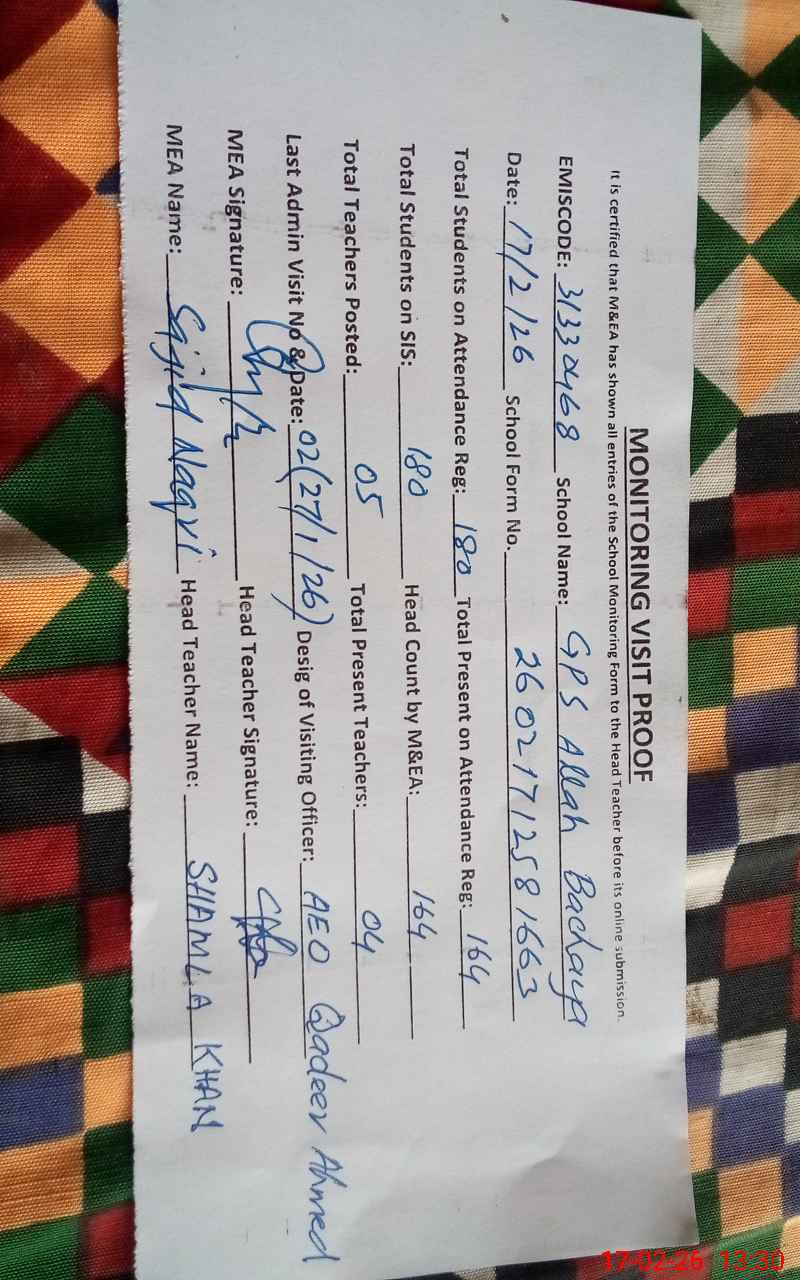 MONITORING VISIT PROOF
It is certified that M&EA has shown all entries of the School Monitoring Form to the Head Teacher before its online submission.
EMISCODE: 31330468 School Name: GPS Allah Bachaya
Date: 17/2/26 School Form No. 2602171258 1663
Total Students on Attendance Reg: 180 Total Present on Attendance Reg: 164
Total Students on SIS: 180 Head Count by M&EA: 164
Total Teachers Posted: 05 Total Present Teachers: 04
Last Admin Visit No & Date: 02(27/1/26) Desig of Visiting Officer: AEO Qadeer Ahmed
MEA Signature: Head Teacher Signature:
MEA Name: Sajid Naqvi Head Teacher Name: SHAMLA KHAN
17-02-26 13:30